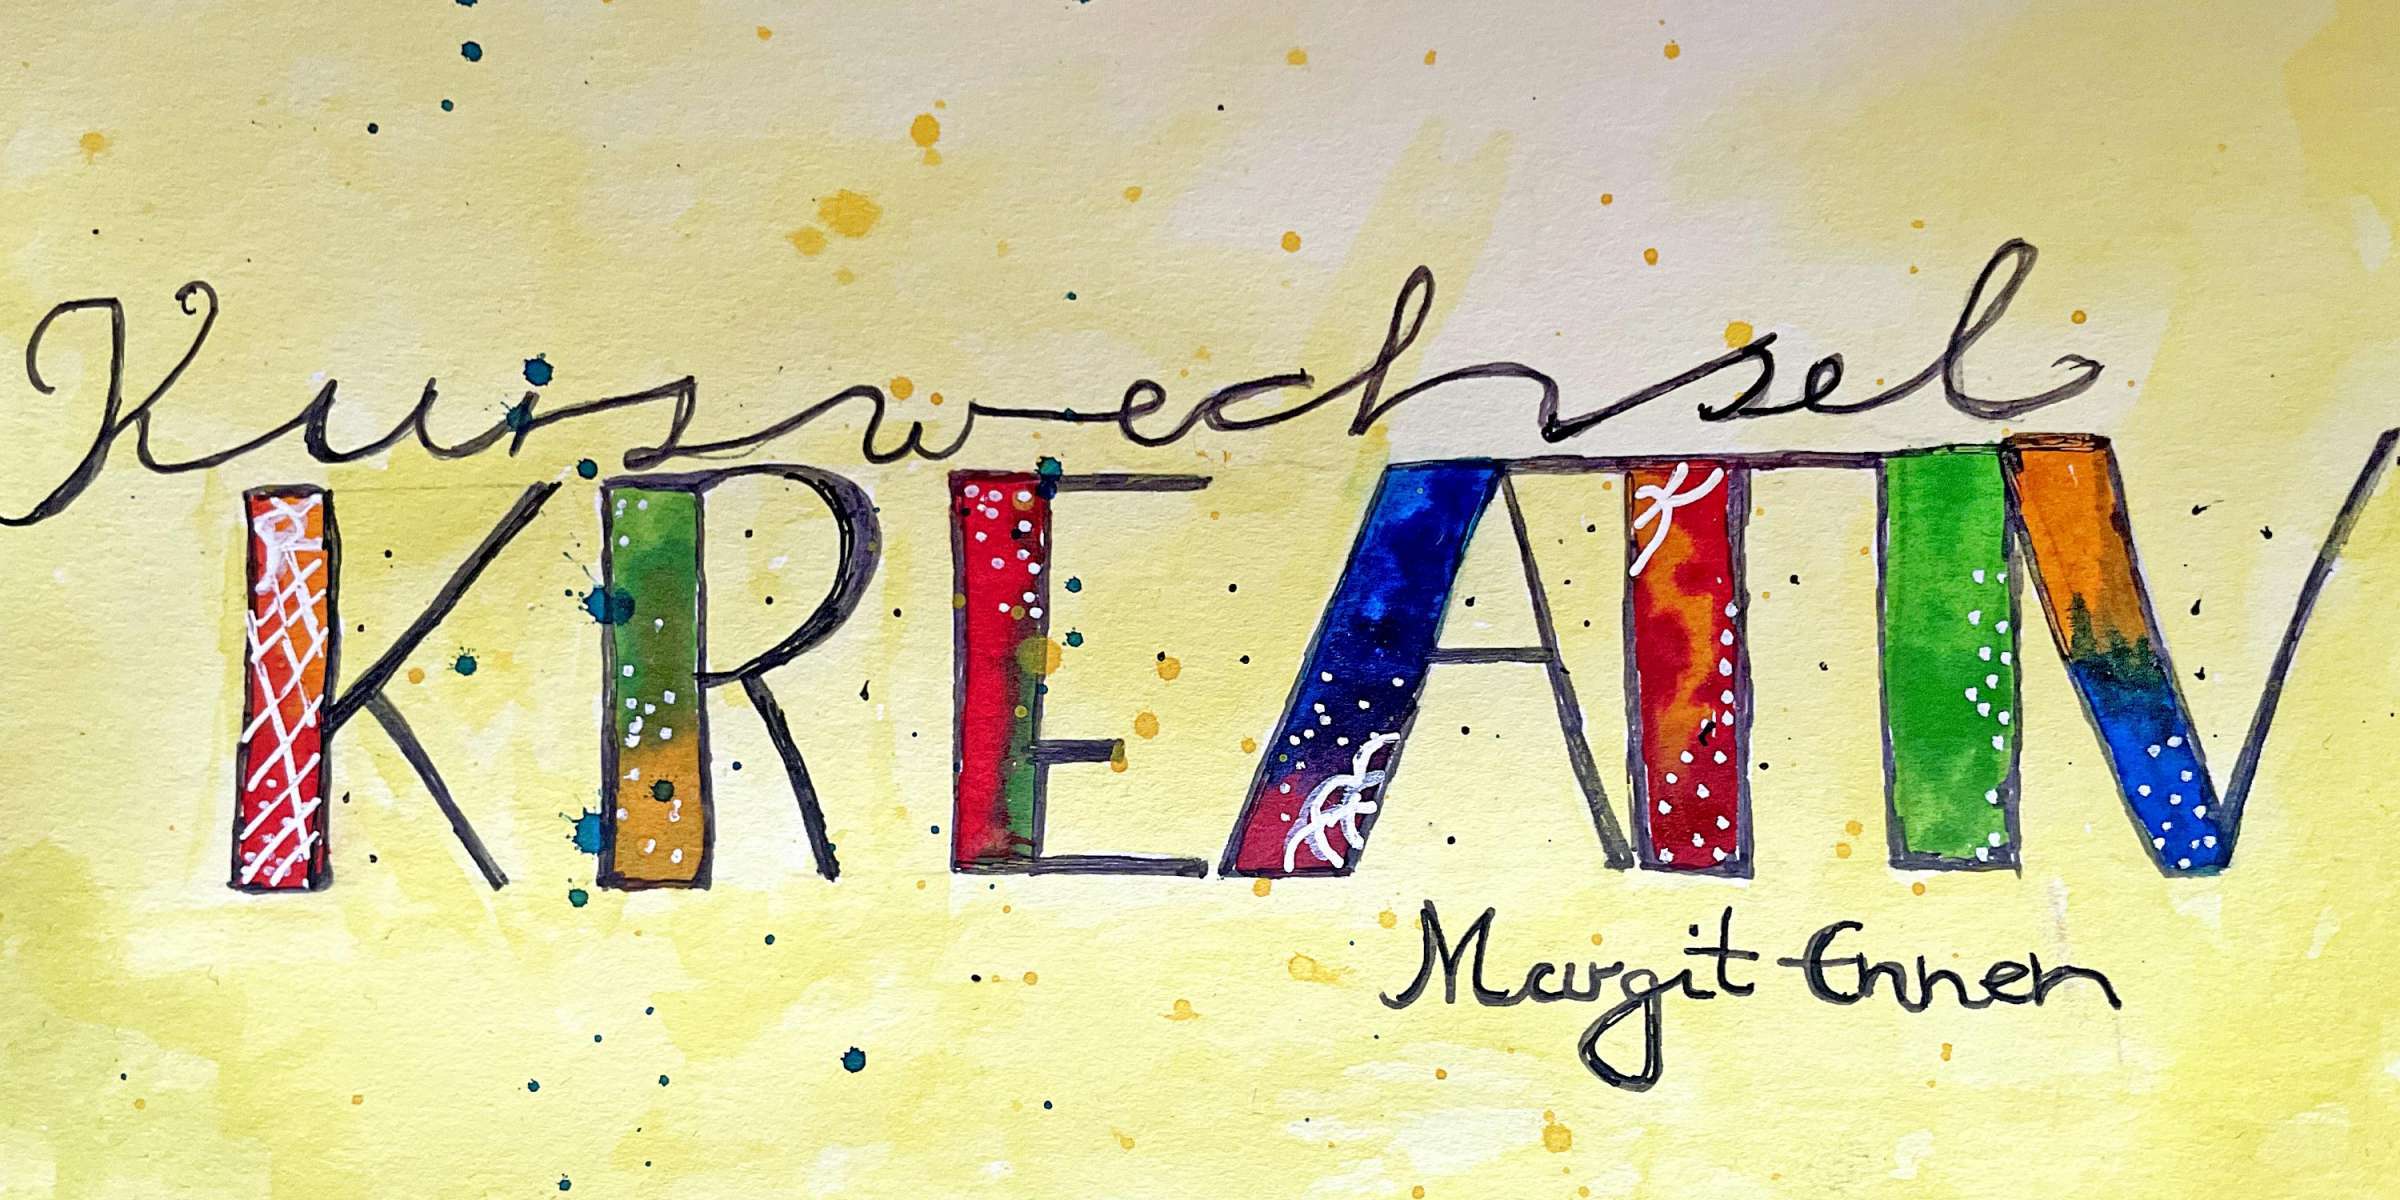 Kurswechsel
KREATIV
Margit Ennen